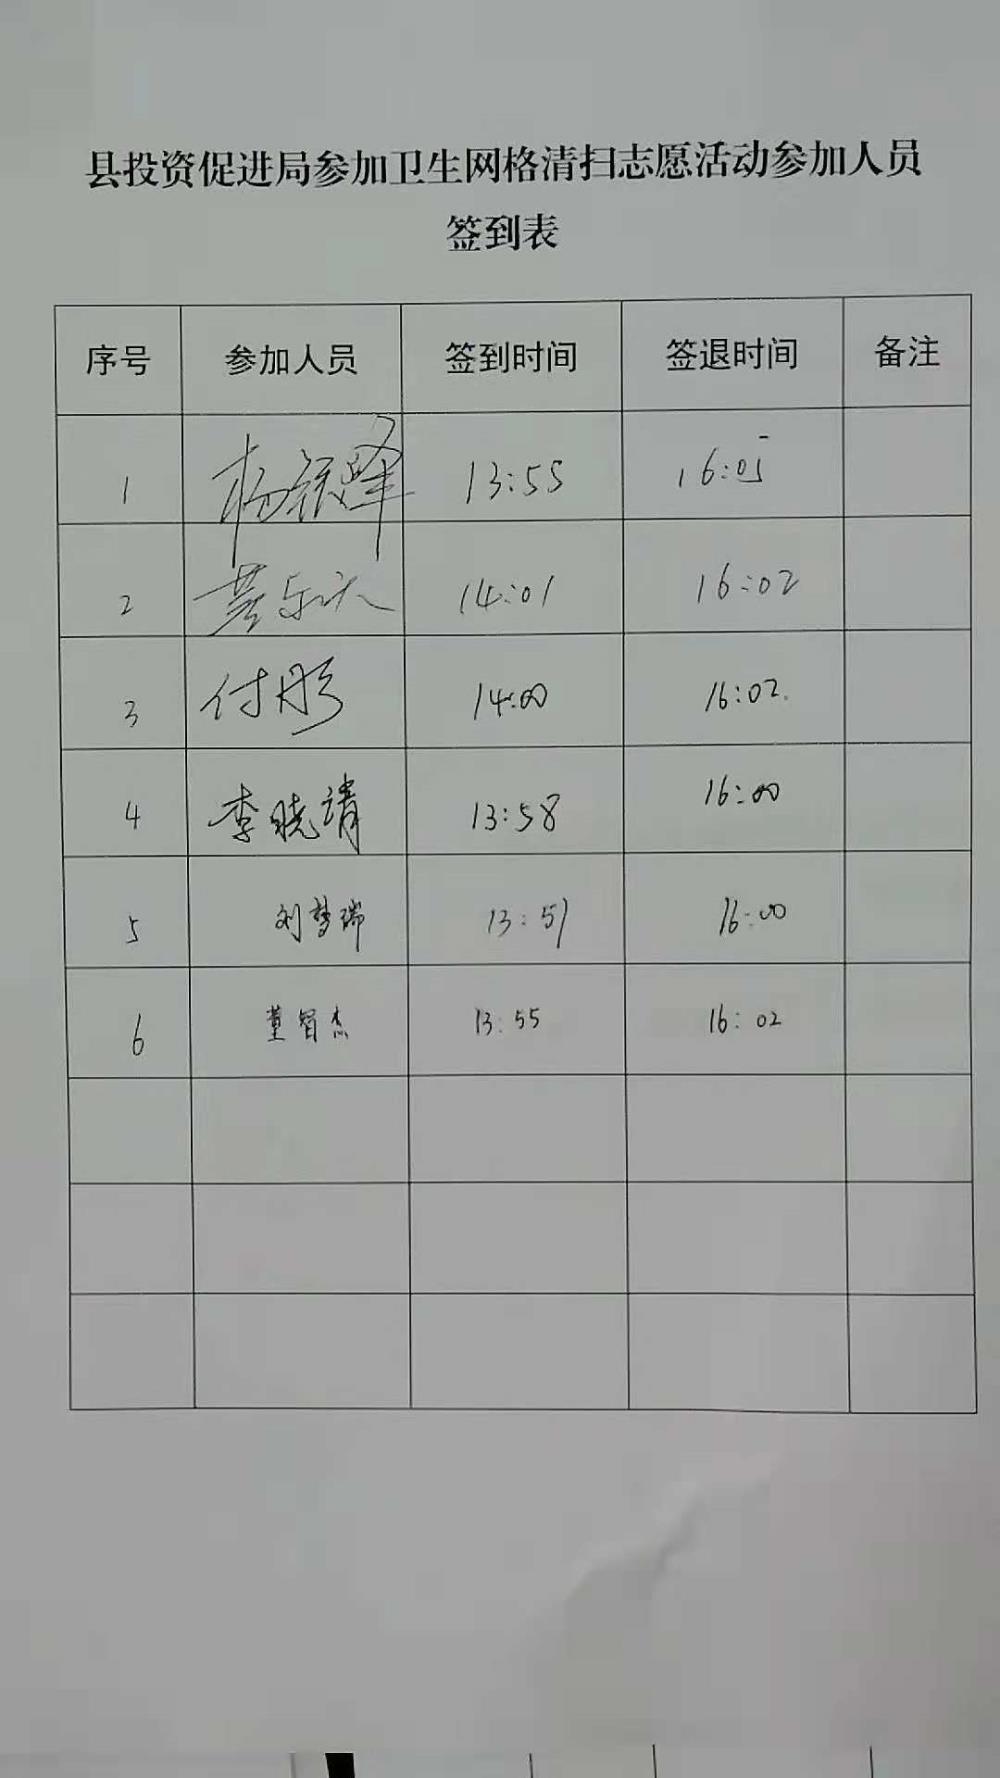 县投资促进局参加卫生网格清扫志愿活动参加人员
签到表
序号 参加人员 签到时间 签退时间 备注
1 杨银峰 13:55 16:05
2 14:01 16:02
3 付彤 14:00 16:02
4 李晓靖 13:58 16:00
5 刘梦瑞 13:57 16:00
6 董智杰 13:55 16:02